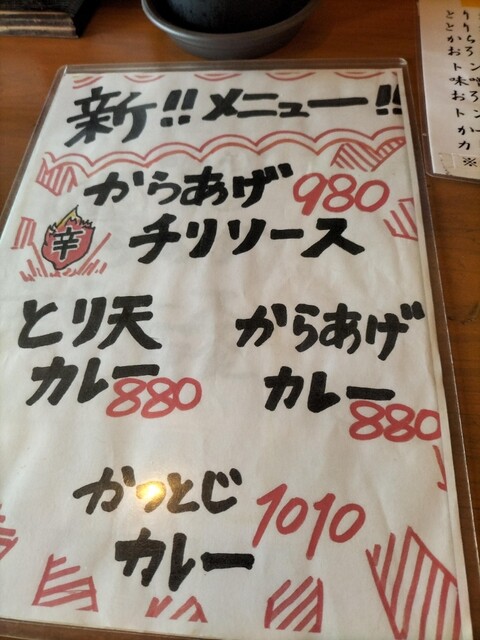 新!!メニュー!!
からあげ 980
辛 チリソース
とり天
カレー 880
からあげ
カレー 880
かつとじ 1010
カレー